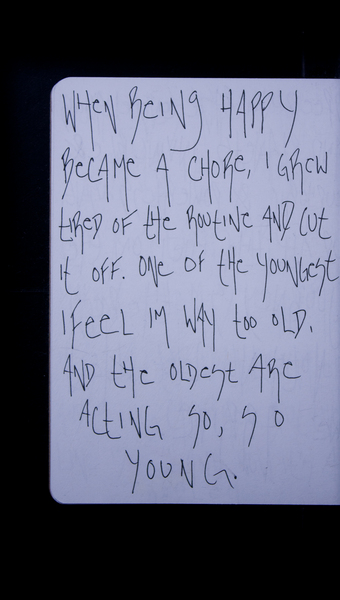 WHEN BEING HAPPY
BECAME A CHORE, I GREW
tIRED OF tHe ROUTINE AND CUt
It OFF. ONe OF tHe YOUNGESt
I FeeL IM WAY too OLD.
AND tHe OLDESt ARe
ACtING SO, SO
YOUNG.